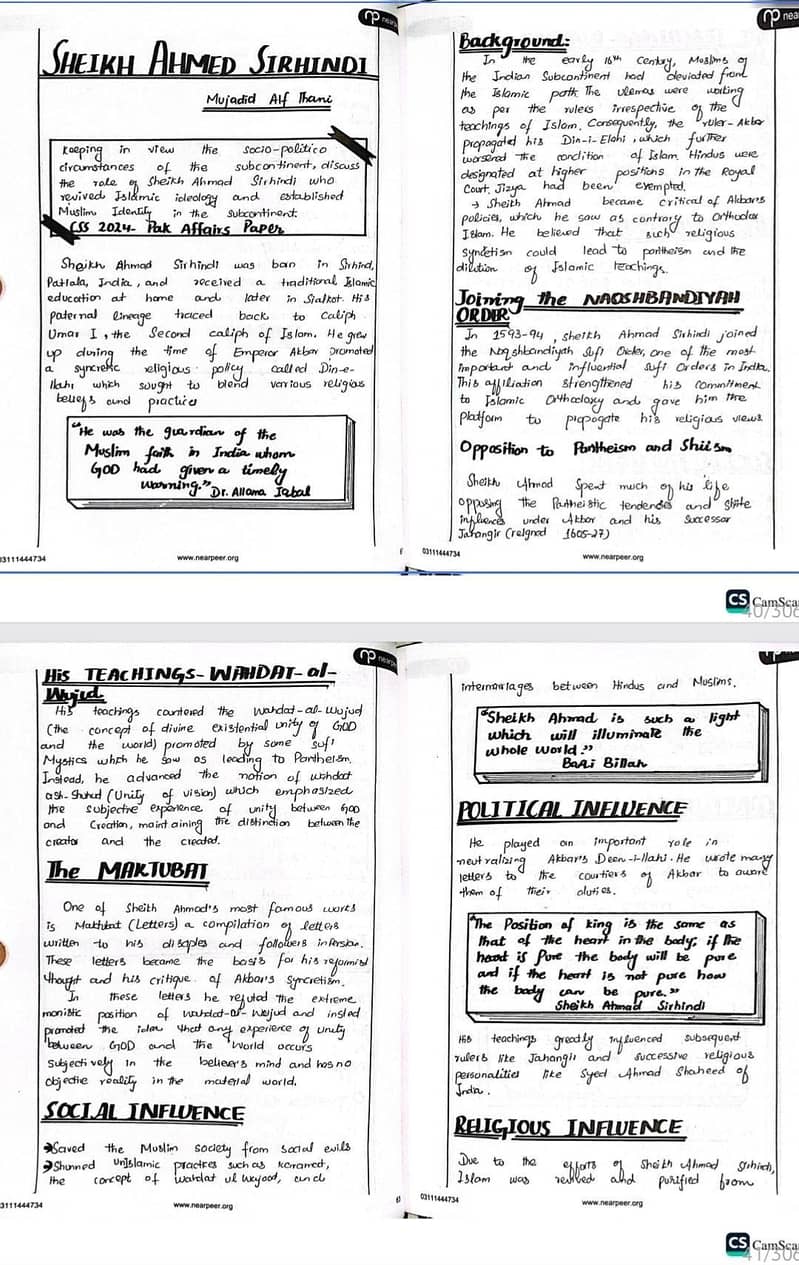 SHEIKH AHMED SIRHINDI
Mujadid Alf Thani
Keeping in view the socio-politico
circumstances of the subcontinent, discuss
the role of Sheikh Ahmad Sirhindi who
revived Islamic ideology and established
Muslim Identity in the subcontinent.
CSS 2024- Pak Affairs Paper
Sheikh Ahmad Sirhindi was born in Sirhind,
Patiala, India, and received a traditional Islamic
education at home and later in Sialkot. His
paternal lineage traced back to Caliph
Umar I, the Second caliph of Islam. He grew
up during the time of Emperor Akbar promoted
a syncretic religious policy called Din-e-
Ilahi which sought to blend various religious
beliefs and practice
"He was the guardian of the
Muslim faith in India whom
GOD had given a timely
warning." Dr. Allama Iqbal
03111444734
www.nearpeer.org
Background:
In the early 16th Century, Muslims of
the Indian Subcontinent had deviated from
the Islamic path. The ulemas were working
as per the rulers irrespective of the
teachings of Islam. Consequently, the ruler- Akbar
propagated his Din-i-Elahi, which further
worsened the condition of Islam. Hindus were
designated at higher positions in the Royal
Court. Jizya had been exempted.
→ Sheikh Ahmad became critical of Akbar's
policies, which he saw as contrary to Orthodox
Islam. He believed that such religious
Syncretism could lead to pantheism and the
dilution of Islamic teachings.
Joining the NAQSHBANDIYAH
ORDER
In 1593-94, sheikh Ahmad Sirhindi joined
the Naqshbandiyah Sufi Order, one of the most
important and influential sufi Orders in India.
This affiliation strengthened his commitment
to Islamic Orthodoxy and gave him the
platform to propogate his religious views.
Opposition to Pantheism and Shiism
Sheikh Ahmad Spent much of his life
opposing the Pantheistic tendencies and Shiite
influences under Akbar and his Successor
Jahangir (reigned 1605-27)
03111444734
www.nearpeer.org
CS CamSca
40/308
His TEACHINGS- WAHDAT-al-
Wujud
His teachings countered the wahdat-al-wujud
(the concept of divine existential unity of GOD
and the world) promoted by some sufi
Mystics which he saw as leading to Pantheism.
Instead, he advanced the notion of wahdat
ash-Shuhud (Unity of vision) which emphasized
the subjective experience of unity between GOD
and Creation, maintaining the distinction between the
creator and the created.
The MAKTUBAT
One of Sheikh Ahmad's most famous works
is Maktubat (Letters) a compilation of letters
written to his disciples and followers in Persian.
These letters became the basis for his reformist
thought and his critique of Akbar's Syncretism.
In these letters he refuted the extreme
monistic position of wahdat-al-wujud and insted
promoted the idea that any experience of unity
between GOD and the World occurs
Subjectively in the believer's mind and has no
objective reality in the material world.
SOCIAL INFLUENCE
→Saved the Muslim society from social evils
→Shunned unIslamic practices such as keramat,
the concept of wahdat ul wujood, and
03111444734
www.nearpeer.org
intermarriages between Hindus and Muslims.
"Sheikh Ahmad is such a light
which will illuminate the
whole world."
Baqi Billah
POLITICAL INFLUENCE
He played an important role in
neutralizing Akbar's Deen-i-Ilahi. He wrote many
letters to the courtiers of Akbar to aware
them of their duties.
"The Position of king is the same as
that of the heart in the body; if the
heart is pure the body will be pure
and if the heart is not pure how
the body can be pure."
Sheikh Ahmad Sirhindi
His teachings greatly influenced subsequent
rulers like Jahangir and successive religious
personalities like Syed Ahmad Shaheed of
India.
RELIGIOUS INFLUENCE
Due to the efforts of Sheikh Ahmad Sirhindi,
Islam was revived and purified from
03111444734
www.nearpeer.org
CS CamSca
41/308